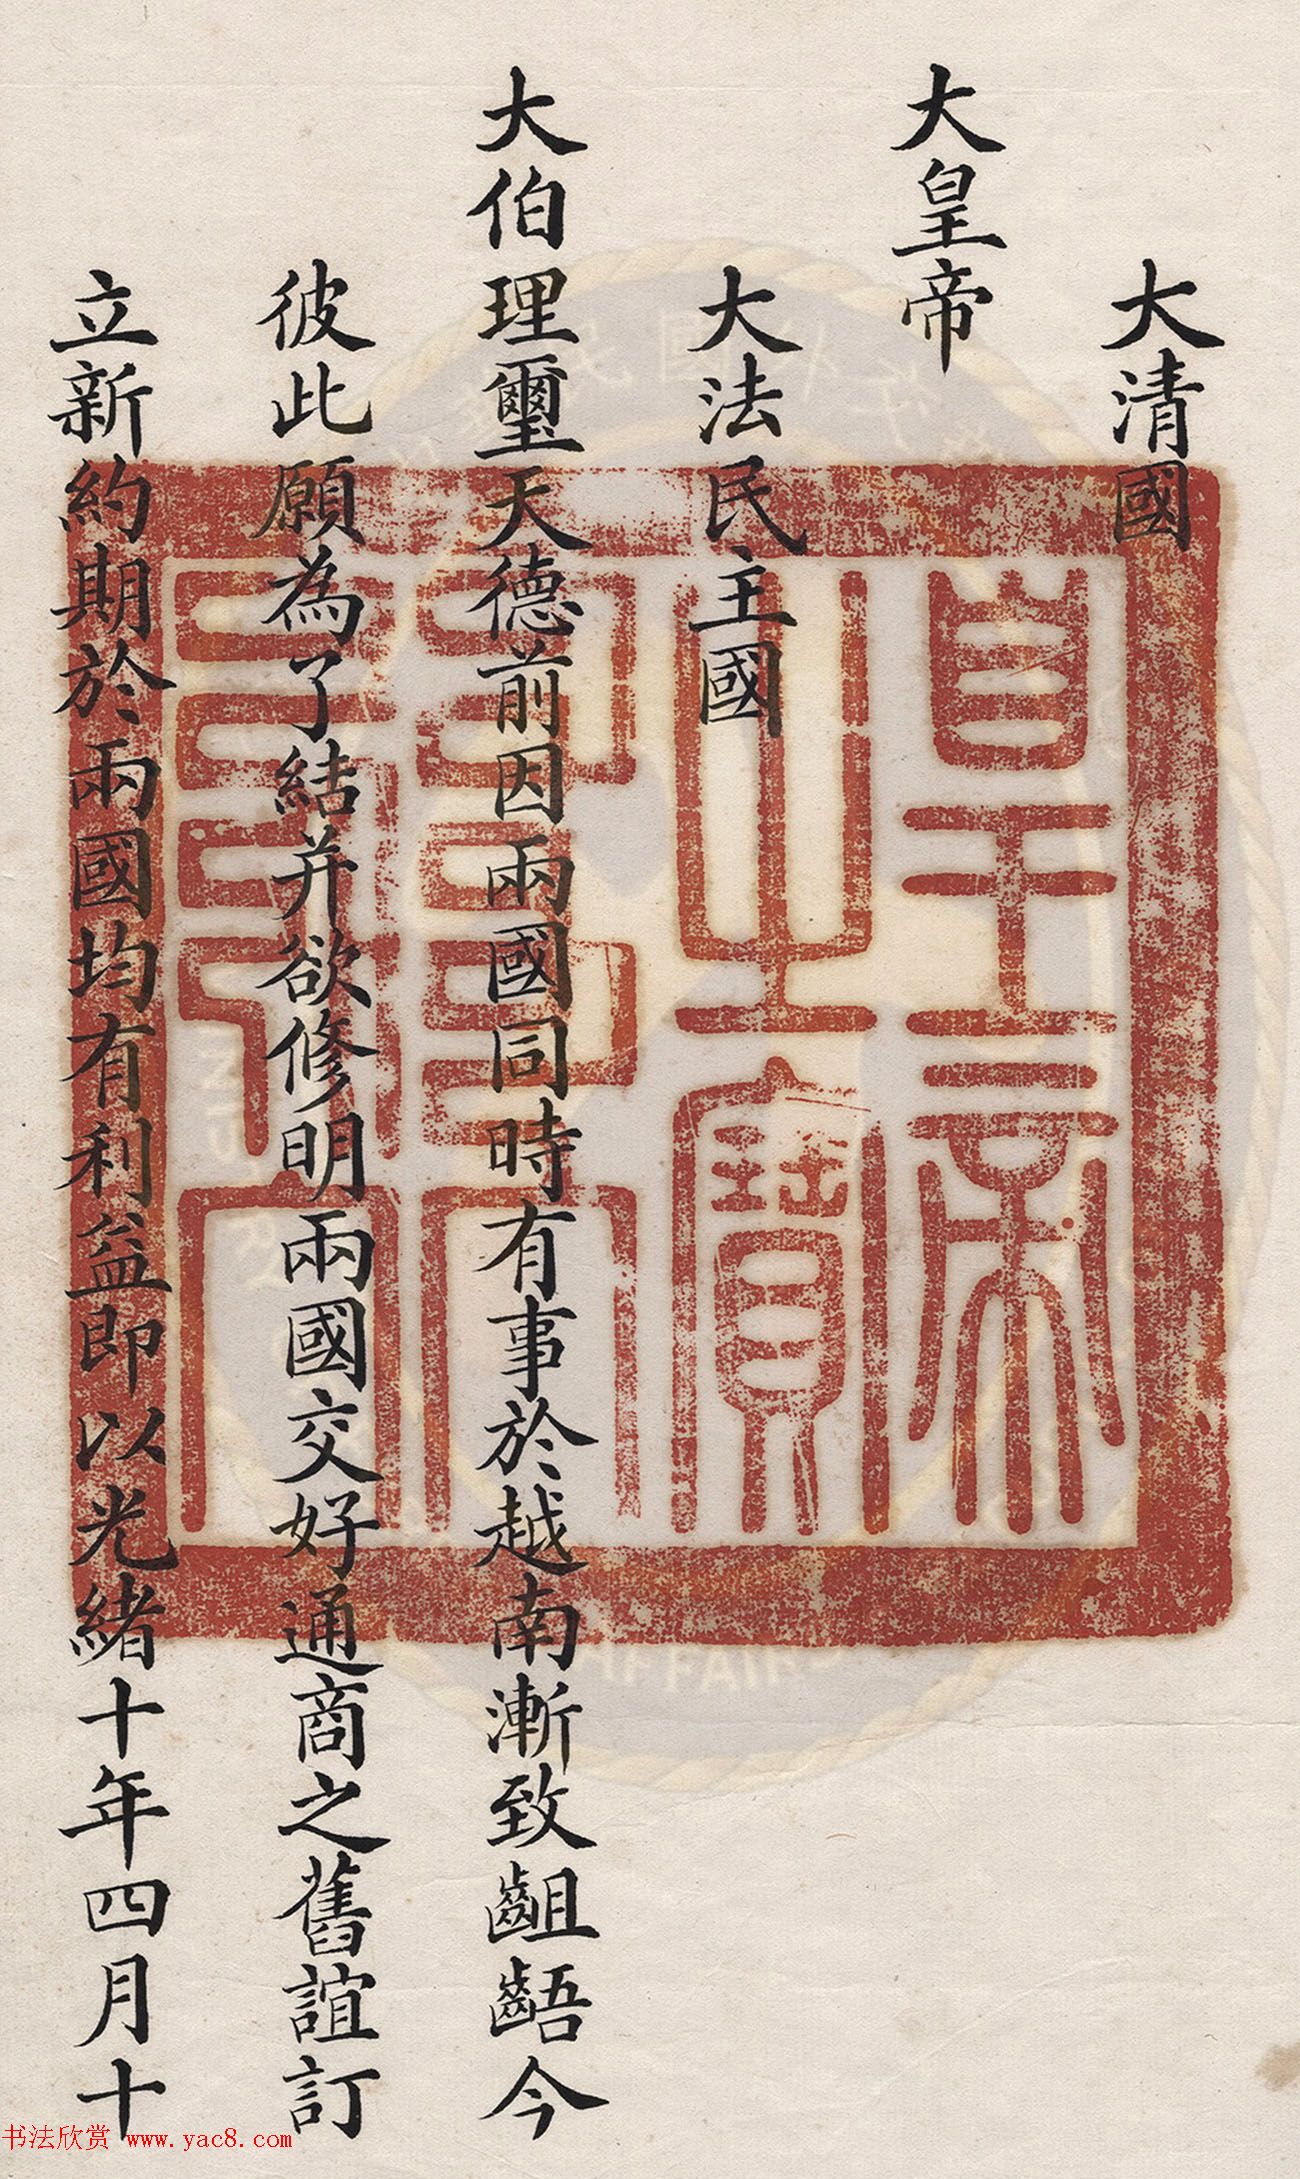 大清國
大皇帝
大法民主國
大伯理璽天德前因兩國同時有事於越南漸致齟齬今
彼此願為了結并欲修明兩國交好通商之舊誼訂
立新約期於兩國均有利益即以光緒十年四月十
皇帝之寶
AFFAIR
书法欣赏 www.yac8.com